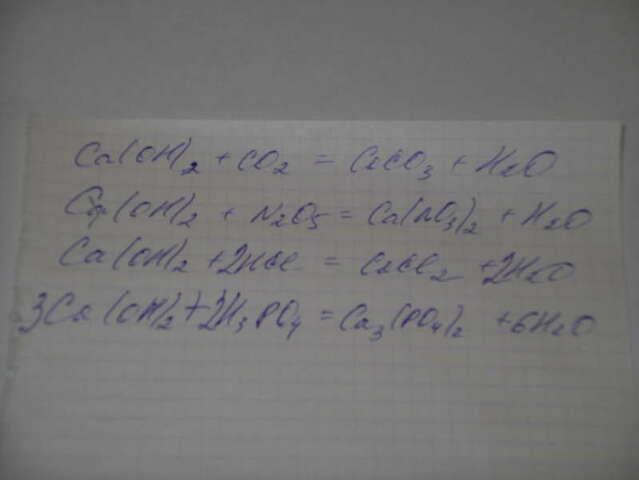 Ca(OH)2 + CO2 = CaCO3 + H2O
Ca(OH)2 + N2O5 = Ca(NO3)2 + H2O
Ca(OH)2 + 2HCl = CaCl2 + 2H2O
3Ca(OH)2 + 2H3PO4 = Ca3(PO4)2 + 6H2O